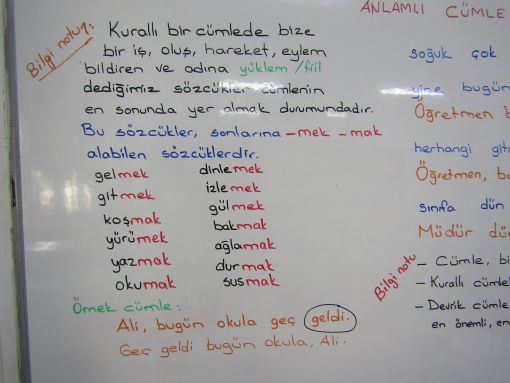 ANLAMLI CÜMLE
Bilgi notu 1:
Kurallı bir cümlede bize
bir iş, oluş, hareket, eylem
bildiren ve adına yüklem/fiil
dediğimiz sözcükler cümlenin
en sonunda yer almak durumundadır.
Bu sözcükler, sonlarına -mek -mak
alabilen sözcüklerdir.
gelmek dinlemek
gitmek izlemek
koşmak gülmek
yürümek bakmak
yazmak ağlamak
okumak durmak
susmak
Örnek cümle:
Ali, bugün okula geç geldi.
Geç geldi bugün okula, Ali.
soğuk çok
yine bugün
Öğretmen
herhangi
Öğretmen,
sınıfa dün
Müdür
Bilgi notu
- Cümle,
- Kurallı
- Devrik cümle
en önemli, en